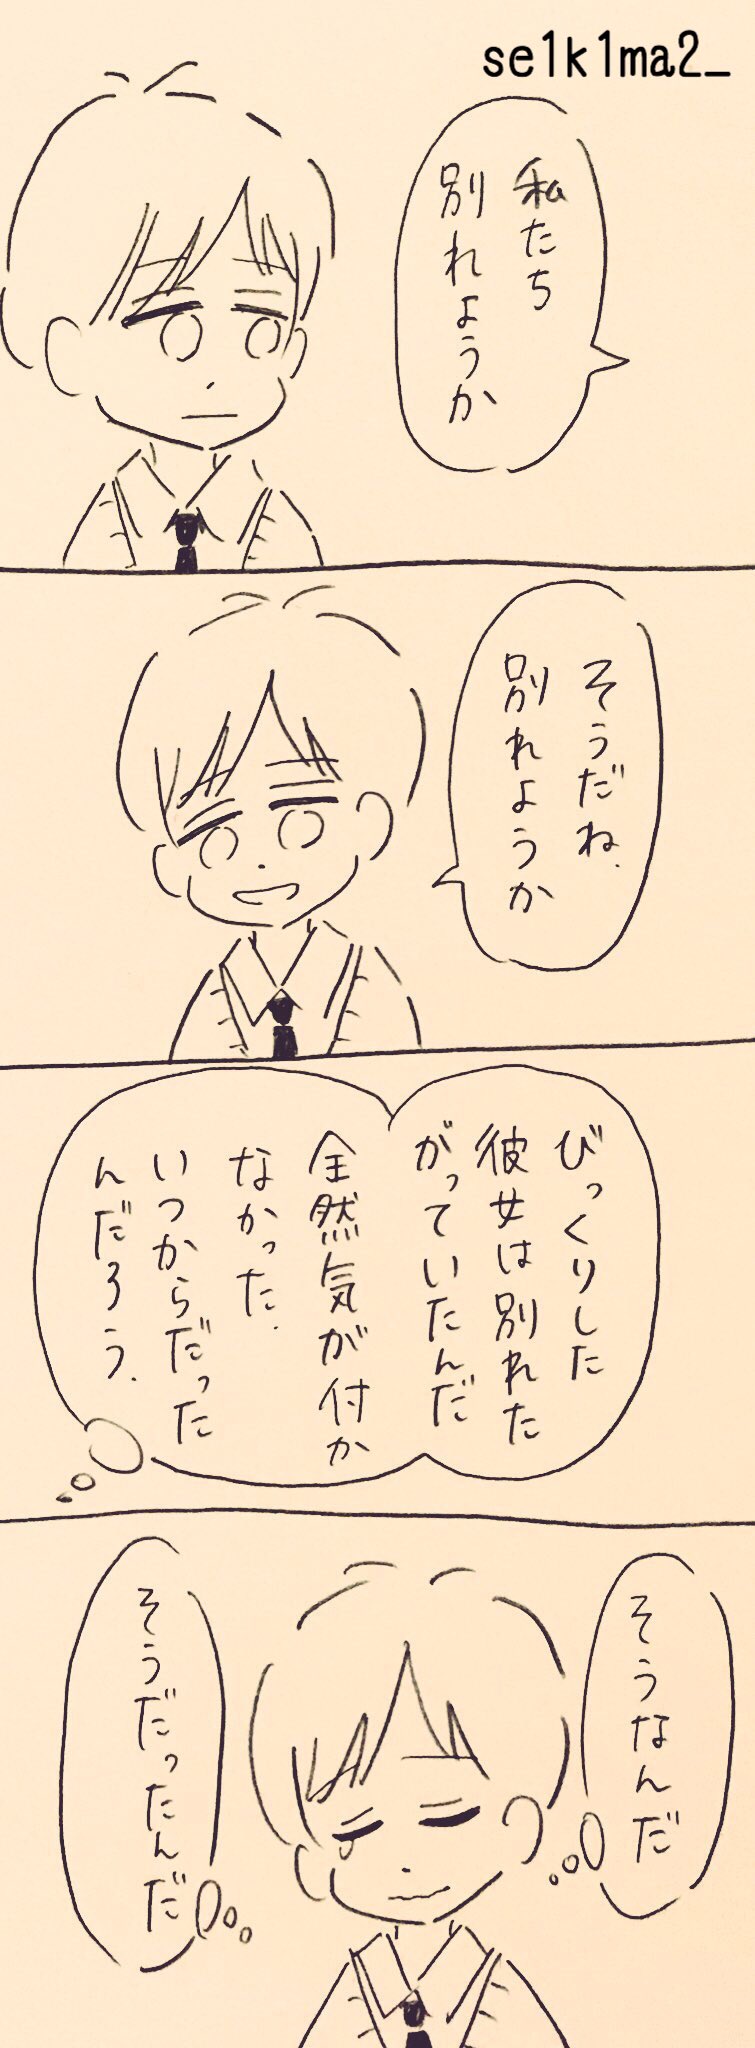 se1k1ma2_
私たち
別れようか
そうだね、
別れようか
びっくりした
彼女は別れた
がっていたんだ
全然気が付か
なかった、
いつからだった
んだろう、
そうなんだ
そうだったんだ